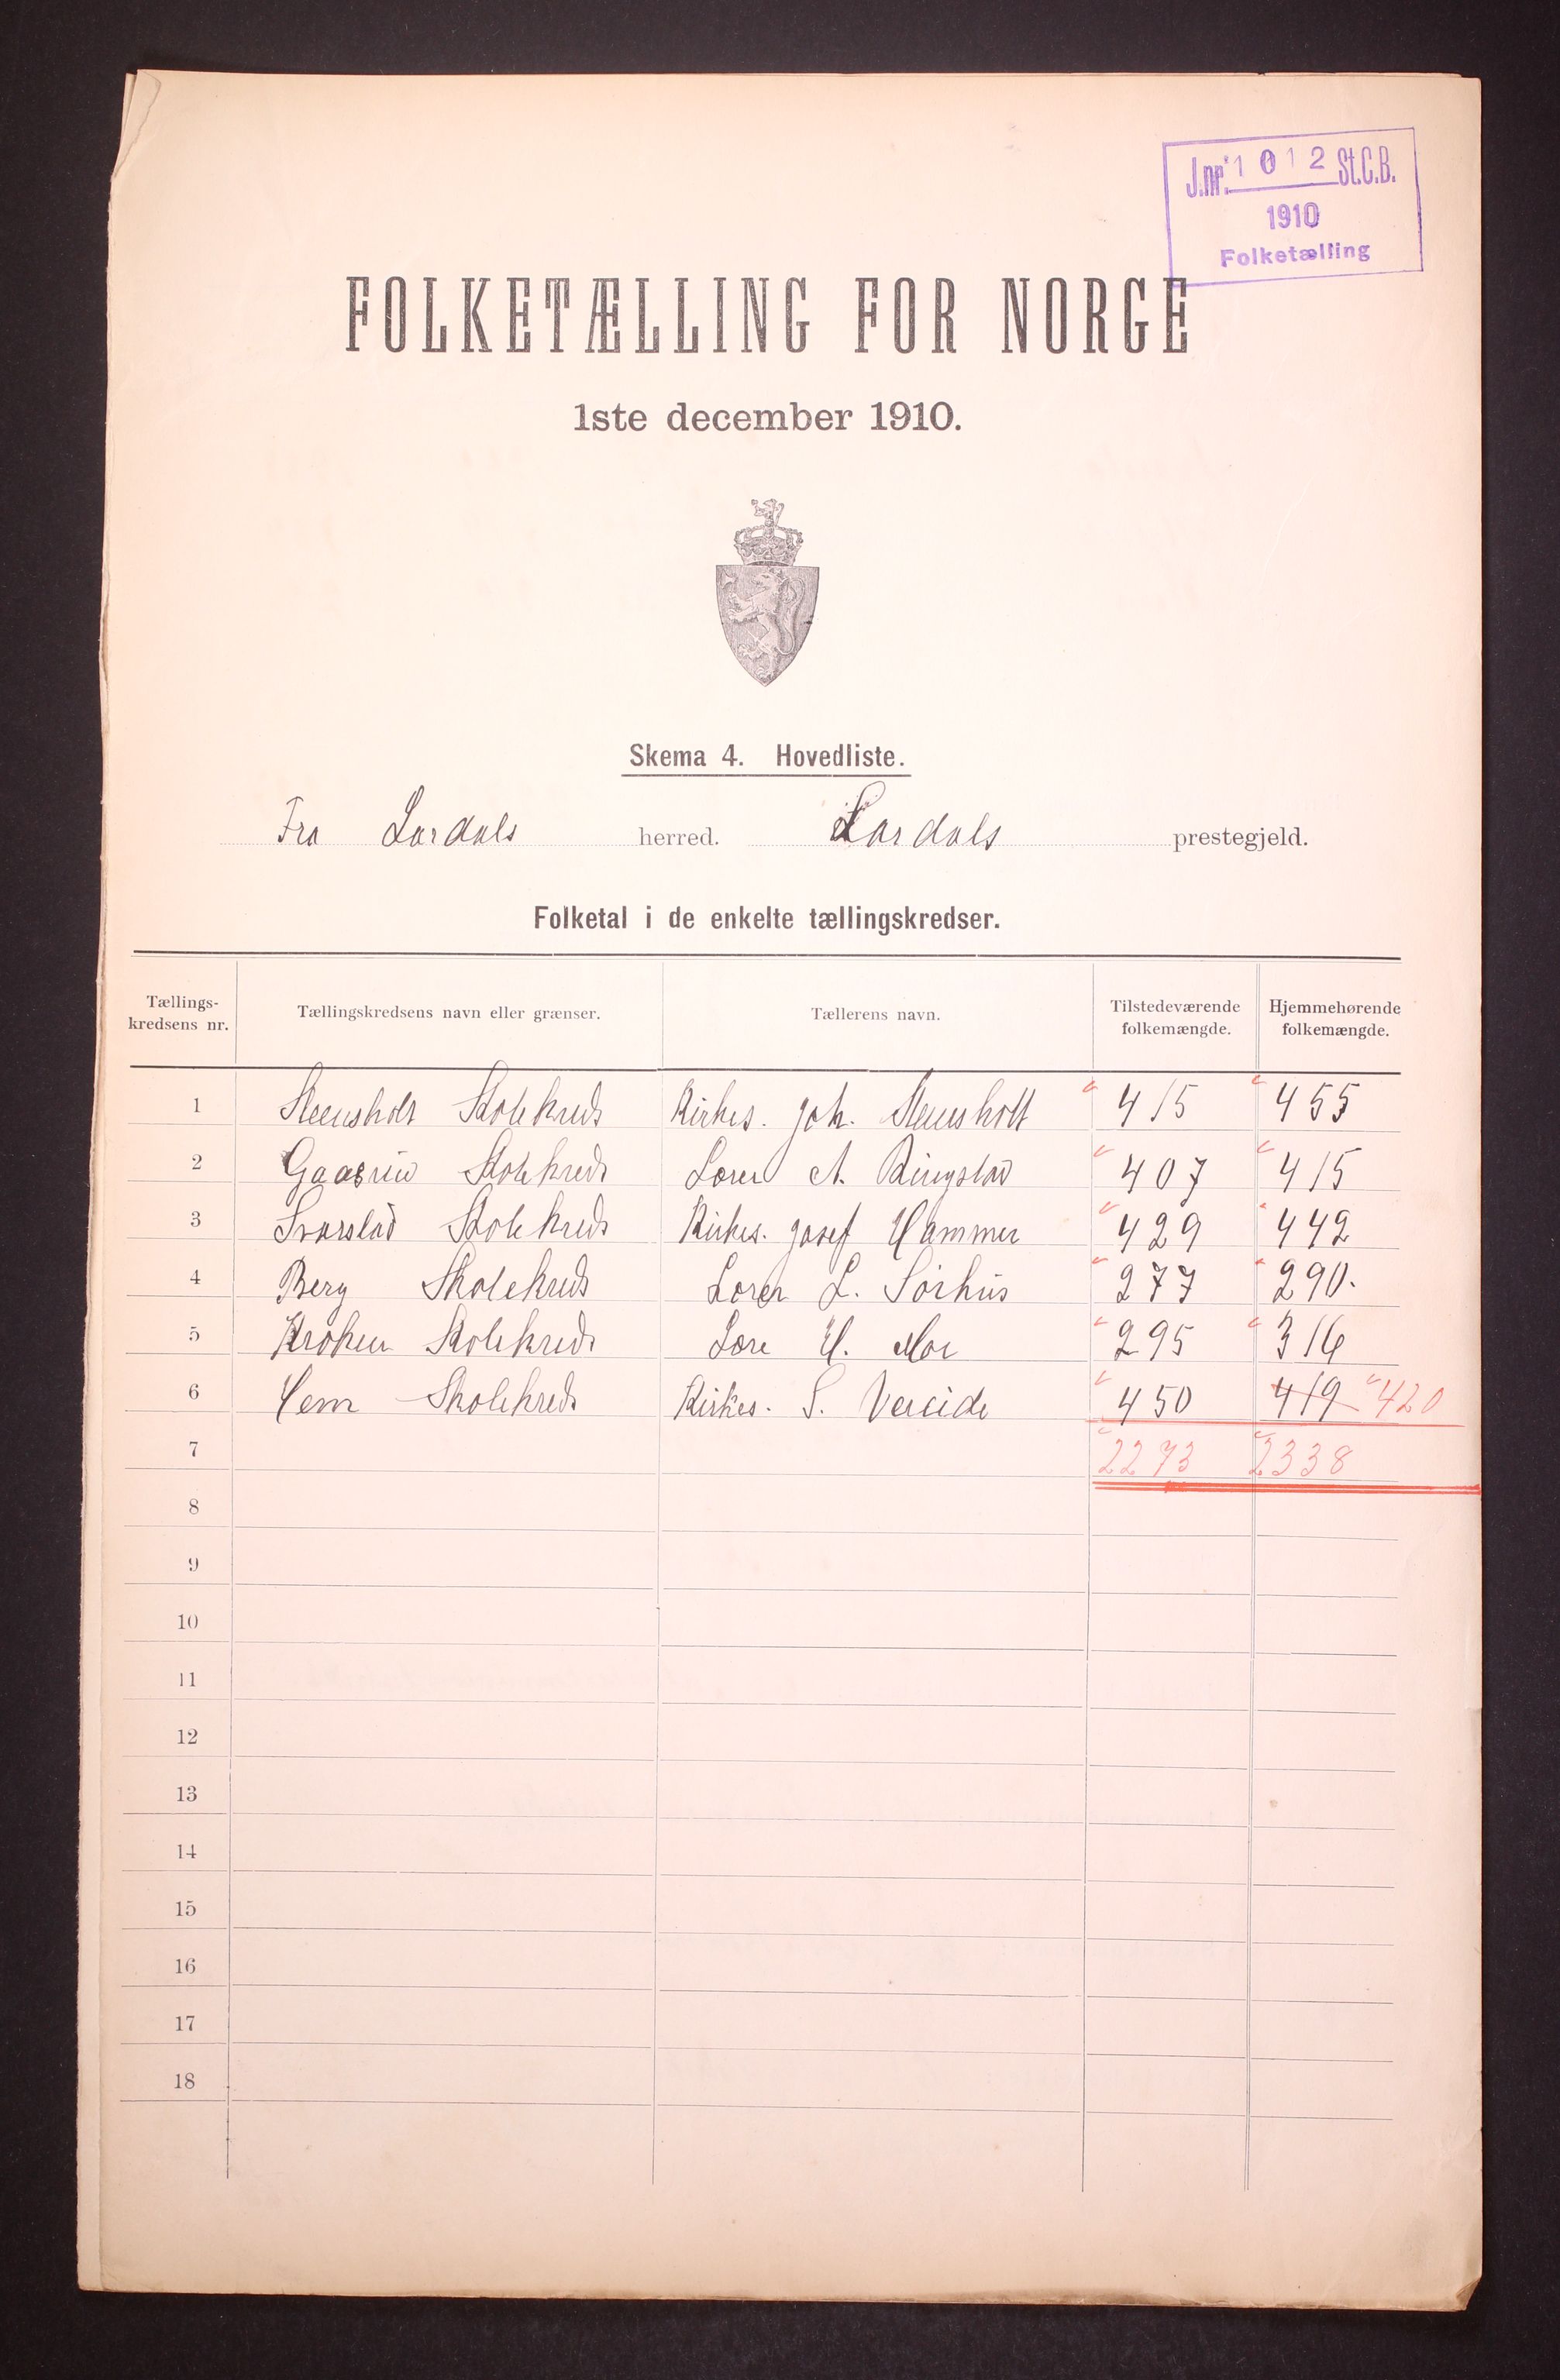 J.nr. 1012 St.C.B.
1910
Folketælling
FOLKETÆLLING FOR NORGE
1ste december 1910.
Skema 4. Hovedliste.
Fra Lardals herred. Lardals prestegjeld.
Folketal i de enkelte tællingskredser.
Tællings-kredsens nr. Tællingskredsens navn eller grænser. Tællerens navn. Tilstedeværende folkemængde. Hjemmehørende folkemængde.
1 Steensholt Skolekreds Kirkes. Joh. Steensholt 415 455
2 Gaasrud Skolekreds Lærer A. Ringstad 407 415
3 Svarstad Skolekreds Kirkes. Josef Hammer 429 442
4 Berg Skolekreds Lærer L. Sørhus 277 290.
5 Kroken Skolekreds Lære H. Moe 295 316
6 Hem Skolekreds Kirkes. S. Vereide 450 419 420
7 2273 2338
8
9
10
11
12
13
14
15
16
17
18